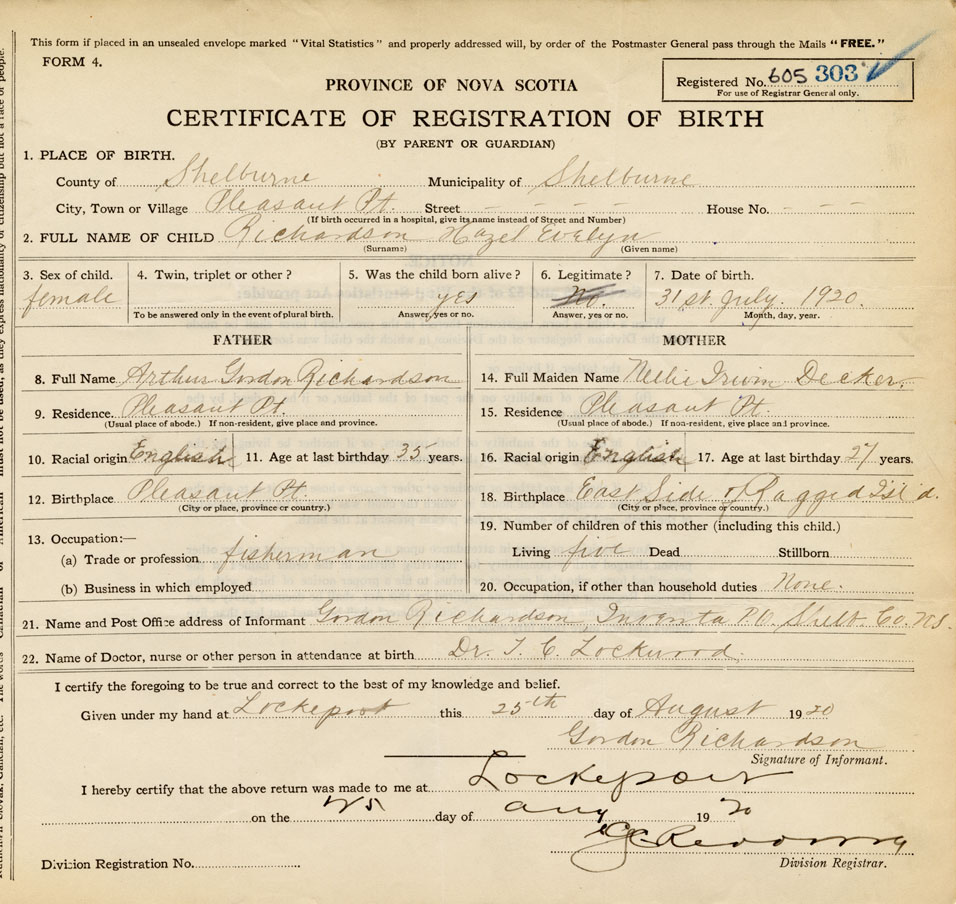 This form if placed in an unsealed envelope marked "Vital Statistics" and properly addressed will, by order of the Postmaster General pass through the Mails "FREE."
FORM 4.
Registered No. 605 303
For use of Registrar General only.
PROVINCE OF NOVA SCOTIA
CERTIFICATE OF REGISTRATION OF BIRTH
(BY PARENT OR GUARDIAN)
1. PLACE OF BIRTH.
County of Shelburne Municipality of Shelburne
City, Town or Village Pleasant Pt. Street - - - House No. - - -
(If birth occurred in a hospital, give its name instead of Street and Number)
2. FULL NAME OF CHILD Richardson Hazel Evelyn
(Surname) (Given name)
3. Sex of child. 4. Twin, triplet or other? 5. Was the child born alive? 6. Legitimate? 7. Date of birth.
female yes No. 31st. July. 1920.
To be answered only in the event of plural birth. Answer, yes or no. Answer, yes or no. Month, day, year.
FATHER MOTHER
8. Full Name Arthur Gordon Richardson 14. Full Maiden Name Nellie Irwin Decker.
9. Residence. Pleasant Pt. 15. Residence Pleasant Pt.
(Usual place of abode.) If non-resident, give place and province. (Usual place of abode.) If non-resident, give place and province.
10. Racial origin English 11. Age at last birthday 35 years. 16. Racial origin English 17. Age at last birthday 27 years.
12. Birthplace Pleasant Pt. 18. Birthplace East Side of Ragged Isl'd.
(City or place, province or country.) (City or place, province or country.)
13. Occupation:— 19. Number of children of this mother (including this child.)
(a) Trade or profession fisherman Living five Dead Stillborn
(b) Business in which employed 20. Occupation, if other than household duties None.
21. Name and Post Office address of Informant Gordon Richardson P.O. Shelb. Co. N.S.
22. Name of Doctor, nurse or other person in attendance at birth Dr. J. C. Lockwood.
I certify the foregoing to be true and correct to the best of my knowledge and belief.
Given under my hand at Lockeport this 25th day of August 1920
Gordon Richardson
Signature of Informant.
I hereby certify that the above return was made to me at Lockeport
on the 25 day of Aug 1920
Division Registration No. Division Registrar.